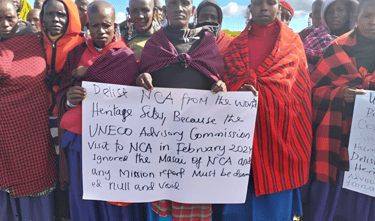 Delist NCA from the World
Heritage Site, Because the
UNECO Advisory Commission
Visit to NCA in February 2024
Ignored the Masai of NCA and
any Mission report Must be
null and void